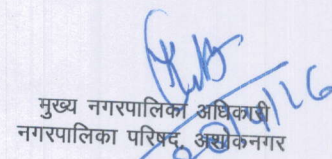 मुख्य नगरपालिका अधिकारी
नगरपालिका परिषद, अशोकनगर